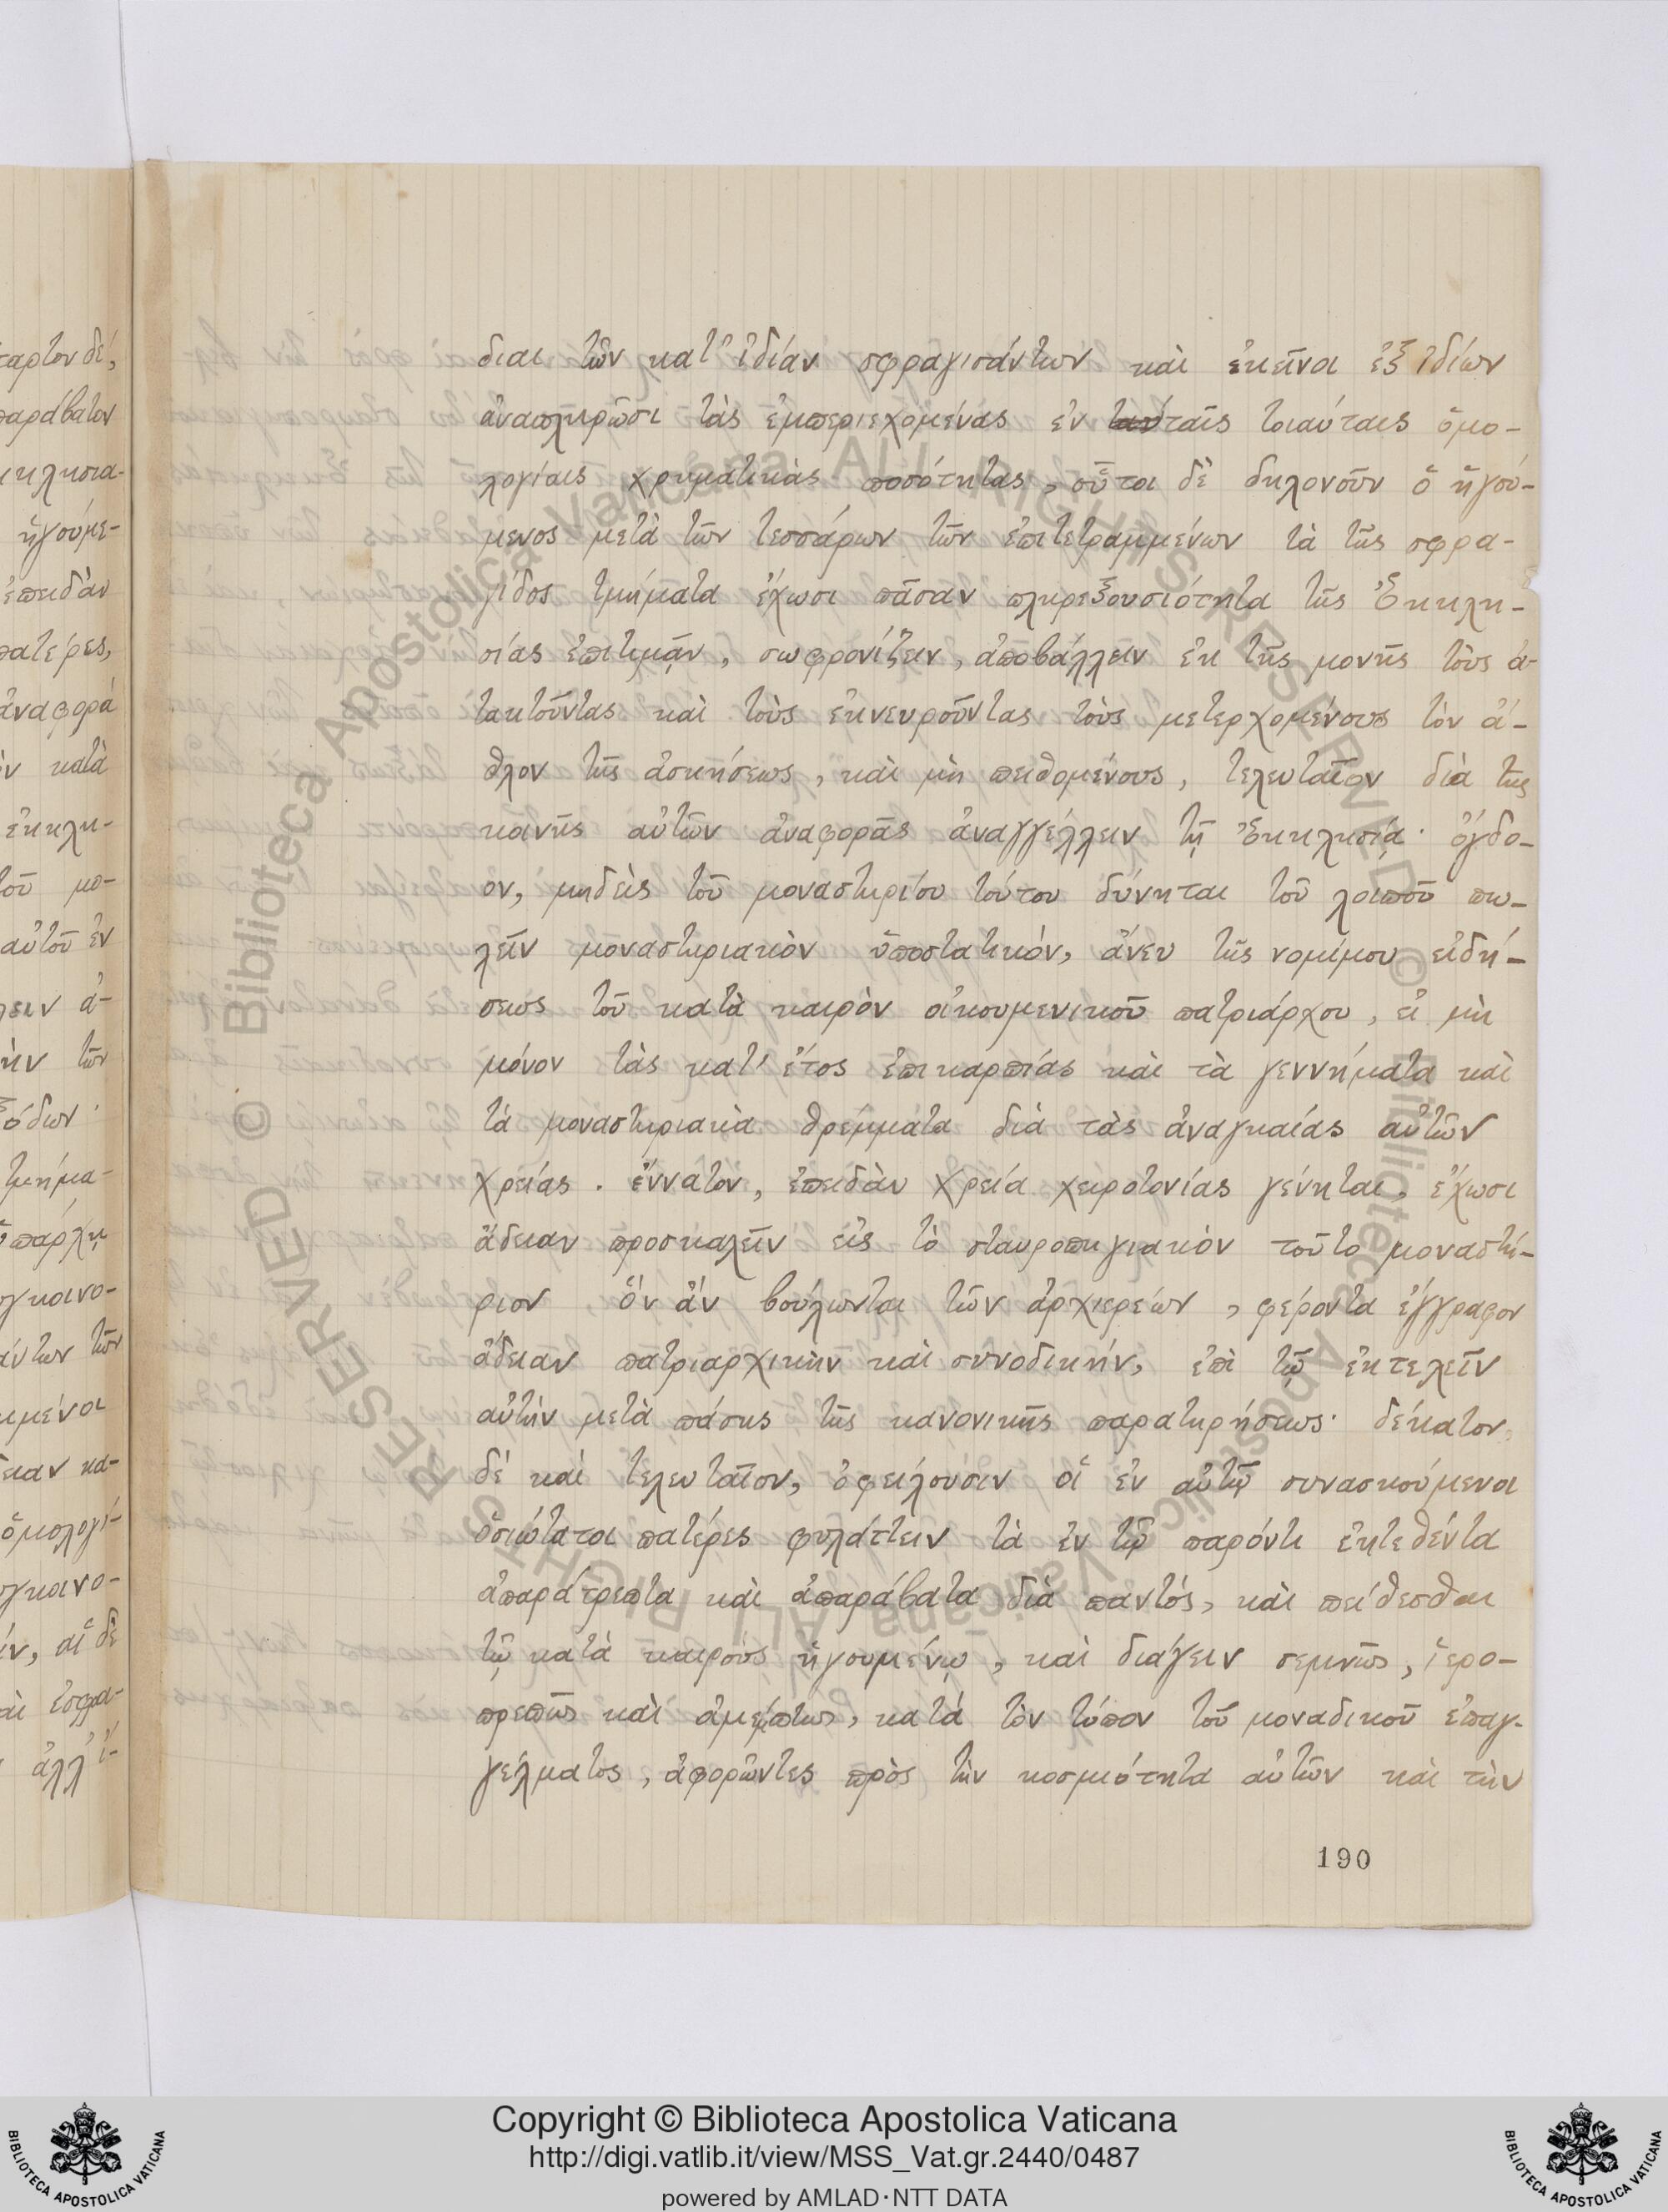 διαι τῶν κατ' ἰδίαν σφραγισάντων καὶ ἐκεῖνοι ἐξ ἰδίων
ἀναπληρῶσι τὰς ἐμπεριεχομένας ἐν ταῖς τοιαύταις ὁμο-
λογίαις χρηματικὰς ποσότητας, οὗτοι δὲ δηλονοῦν ὁ ἡγού-
μενος μετὰ τῶν τεσσάρων τῶν ἐπιτετραμμένων τὰ τῆς σφρα-
γίδος τμήματα ἔχωσι πᾶσαν πληρεξουσιότητα τῆς Ἐκκλη-
σίας ἐπιτιμᾷν, σωφρονίζειν, ἀποβάλλειν ἐκ τῆς μονῆς τοὺς ἀ-
τακτοῦντας καὶ τοὺς ἐκνευροῦντας τοὺς μετερχομένους τὸν ἆ-
θλον τῆς ἀσκήσεως, καὶ μὴ πειθομένους, τελευταῖον διὰ τῆς
κοινῆς αὐτῶν ἀναφορᾶς ἀναγγέλλειν τῇ Ἐκκλησίᾳ· ὄγδο-
ον, μηδεὶς τοῦ μοναστηρίου τούτου δύνηται τοῦ λοιποῦ πω-
λεῖν μοναστηριακὸν ὑποστατικόν, ἄνευ τῆς νομίμου εἰδή-
σεως τοῦ κατὰ καιρὸν οἰκουμενικοῦ πατριάρχου, εἰ μὴ
μόνον τὰς κατ' ἔτος ἐπικαρπίας καὶ τὰ γεννήματα καὶ
τὰ μοναστηριακὰ θρέμματα διὰ τὰς ἀναγκαίας αὐτῶν
χρείας. ἔννατον, ἐπειδὰν χρεία χειροτονίας γένηται, ἔχωσι
ἄδειαν προσκαλεῖν εἰς τὸ σταυροπηγιακὸν τοῦτο μοναστή-
ριον ὃν ἂν βούλωνται τῶν ἀρχιερέων, φέροντα ἔγγραφον
ἄδειαν πατριαρχικὴν καὶ συνοδικήν, ἐπὶ τῷ ἐκτελεῖν
αὐτὴν μετὰ πάσης τῆς κανονικῆς παρατηρήσεως· δέκατον
δὲ καὶ τελευταῖον, ὀφείλουσιν οἱ ἐν αὐτῷ συνασκούμενοι
ὁσιώτατοι πατέρες φυλάττειν τὰ ἐν τῷ παρόντι ἐκτεθέντα
ἀπαράτρεπτα καὶ ἀπαράβατα διὰ παντός, καὶ πείθεσθαι
τῷ κατὰ καιροὺς ἡγουμένῳ, καὶ διάγειν σεμνῶς, ἱερο-
πρεπῶς καὶ ἀμέμπτως, κατὰ τὸν τύπον τοῦ μοναδικοῦ ἐπαγ-
γέλματος, ἀφορῶντες πρὸς τὴν κοσμιότητα αὐτῶν καὶ τὴν
190
Copyright © Biblioteca Apostolica Vaticana
http://digi.vatlib.it/view/MSS_Vat.gr.2440/0487
powered by AMLAD·NTT DATA